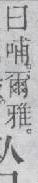 曰哺。爾雅。